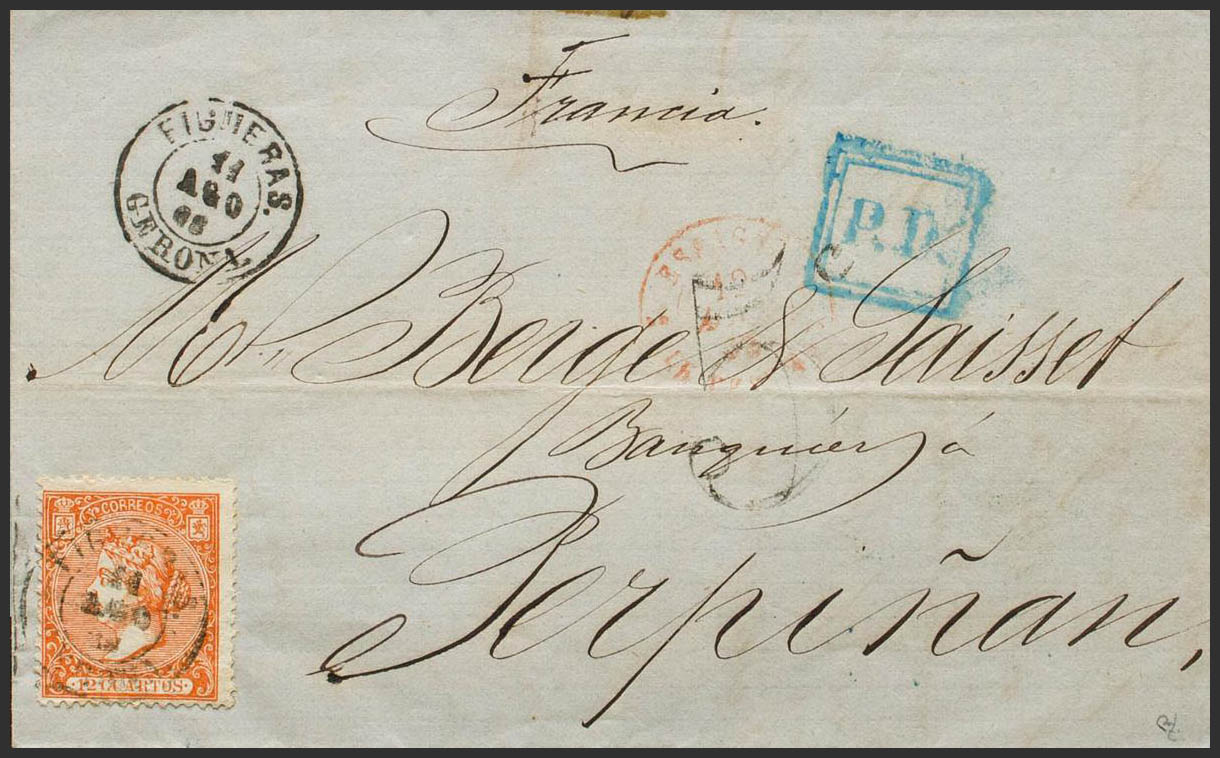 Francia.
FIGUERAS.
11
AGO
66
GERONA
P.D.
ESPAGNE
12
Mrs Berge & Saisset
Banquiers à
Perpiñan,
CORREOS
11
AGO
12 CUARTOS